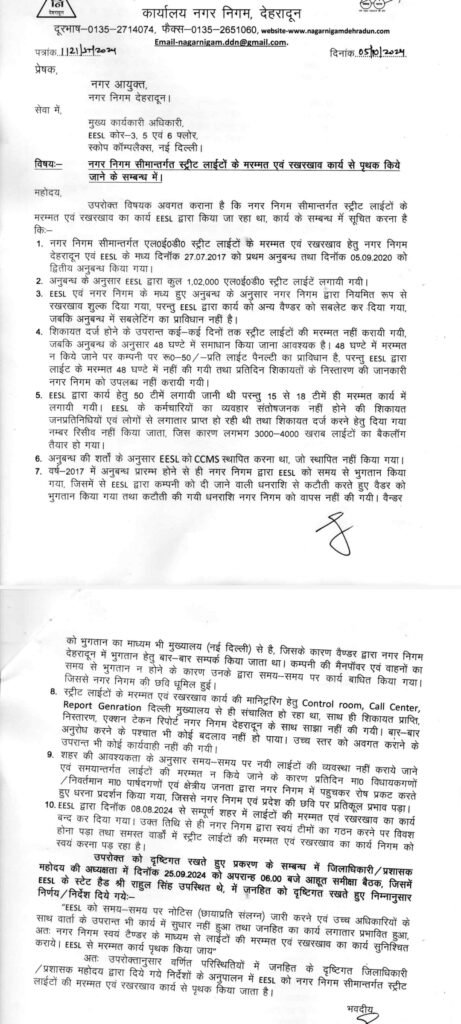 देहरादून
कार्यालय नगर निगम, देहरादून
दूरभाष–0135–2714074, फैक्स–0135–2651060, website-www.nagarnigamdehradun.com
Email-nagarnigam.ddn@gmail.com.
पत्रांक
दिनांक 05/10/2024
प्रेषक,
नगर आयुक्त,
नगर निगम देहरादून।
सेवा में,
मुख्य कार्यकारी अधिकारी,
EESL कोर–3, 5 एवं 6 फ्लोर,
स्कोप कॉम्पलैक्स, नई दिल्ली।
विषयः– नगर निगम सीमान्तर्गत स्ट्रीट लाईटों के मरम्मत एवं रखरखाव कार्य से पृथक किये
जाने के सम्बन्ध में।
महोदय,
उपरोक्त विषयक अवगत कराना है कि नगर निगम सीमान्तर्गत स्ट्रीट लाईटों के
मरम्मत एवं रखरखाव का कार्य EESL द्वारा किया जा रहा था, कार्य के सम्बन्ध में सूचित करना है
किः–
1. नगर निगम सीमान्तर्गत एल0ई0डी0 स्ट्रीट लाईटों के मरम्मत एवं रखरखाव हेतु नगर निगम
देहरादून एवं EESL के मध्य दिनॉक 27.07.2017 को प्रथम अनुबन्ध तथा दिनॉक 05.09.2020 को
द्वितीय अनुबन्ध किया गया।
2. अनुबन्ध के अनुसार EESL द्वारा कुल 1,02,000 एल0ई0डी0 स्ट्रीट लाईटें लगायी गयी।
3. EESL एवं नगर निगम के मध्य हुए अनुबन्ध के अनुसार नगर निगम द्वारा नियमित रूप से
रखरखाव शुल्क दिया गया, परन्तु EESL द्वारा कार्य को अन्य वैण्डर को सबलेट कर दिया गया,
जबकि अनुबन्ध में सबलेटिंग का प्राविधान नहीं है।
4. शिकायत दर्ज होने के उपरान्त कई–कई दिनों तक स्ट्रीट लाईटों की मरम्मत नहीं करायी गयी,
जबकि अनुबन्ध के अनुसार 48 घण्टे में समाधान किया जाना आवश्यक है। 48 घण्टे में मरम्मत
न किये जाने पर कम्पनी पर रू0–50/–प्रति लाईट पैनल्टी का प्राविधान है, परन्तु EESL द्वारा
लाईट के मरम्मत 48 घण्टे में नहीं की गयी तथा प्रतिदिन शिकायतों के निस्तारण की जानकारी
नगर निगम को उपलब्ध नहीं करायी गयी।
5. EESL द्वारा कार्य हेतु 50 टीमें लगायी जानी थी परन्तु 15 से 18 टीमें ही मरम्मत कार्य में
लगायी गयी। EESL के कर्मचारियों का व्यवहार संतोषजनक नहीं होने की शिकायत
जनप्रतिनिधियों एवं लोगों से लगातार प्राप्त हो रही थी तथा शिकायत दर्ज करने हेतु दिया गया
नम्बर रिसीव नहीं किया जाता, जिस कारण लगभग 3000–4000 खराब लाईटों का बैकलॉग
तैयार हो गया।
6. अनुबन्ध की शर्तो के अनुसार EESL को CCMS स्थापित करना था, जो स्थापित नहीं किया गया।
7. वर्ष–2017 में अनुबन्ध प्रारम्भ होने से ही नगर निगम द्वारा EESL को समय से भुगतान किया
गया, जिसमें से EESL द्वारा कम्पनी को दी जाने वाली धनराशि से कटौती करते हुए वैडर को
भुगतान किया गया तथा कटौती की गयी धनराशि नगर निगम को वापस नहीं की गयी। वैन्डर
को भुगतान का माध्यम भी मुख्यालय (नई दिल्ली) से है, जिसके कारण वैण्डर द्वारा नगर निगम
देहरादून में भुगतान हेतु बार–बार सम्पर्क किया जाता था। कम्पनी की मैनपॉवर एवं वाहनों का
समय से भुगतान न होने के कारण उनके द्वारा समय–समय पर कार्य बाधित किया गया।
जिससे नगर निगम की छवि धूमिल हुई।
8. स्ट्रीट लाईटों के मरम्मत एवं रखरखाव कार्य की मानिट्ररिंग हेतु Control room, Call Center,
Report Genration दिल्ली मुख्यालय से ही संचालित हो रहा था, साथ ही शिकायत प्राप्ति,
निस्तारण, एक्शन टेकन रिपोर्ट नगर निगम देहरादून के साथ साझा नहीं की गयी। बार–बार
अनुरोध करने के पश्चात भी कोई बदलाव नहीं हो पाया। उच्च स्तर को अवगत कराने के
उपरान्त भी कोई कार्यवाही नहीं की गयी।
9. शहर की आवश्यकता के अनुसार समय–समय पर नयी लाईटों की व्यवस्था नहीं कराये जाने
एवं समयान्तर्गत लाईटों की मरम्मत न किये जाने के कारण प्रतिदिन मा0 विधायकगणों
/निवर्तमान मा0 पार्षदगणों एवं क्षेत्रीय जनता द्वारा नगर निगम में पहुचकर रोष प्रकट करते
हुए धरना प्रदर्शन किया गया, जिससे नगर निगम एवं प्रदेश की छवि पर प्रतिकूल प्रभाव पड़ा।
10. EESL द्वारा दिनॉक 08.08.2024 से सम्पूर्ण शहर में लाईटों की मरम्मत एवं रखरखाव का कार्य
बन्द कर दिया गया। उक्त तिथि से ही नगर निगम द्वारा स्वयं टीमों का गठन करने पर विवश
होना पड़ा तथा समस्त वार्डों में स्ट्रीट लाईटों की मरम्मत एवं रखरखाव का कार्य निगम को
स्वयं करना पड़ रहा है।
उपरोक्त को दृष्टिगत रखते हुए प्रकरण के सम्बन्ध में जिलाधिकारी/प्रशासक
महोदय की अध्यक्षता में दिनॉक 25.09.2024 को अपरान्ह 06.00 बजे आहूत समीक्षा बैठक, जिसमें
EESL के स्टेट हैड श्री राहुल सिंह उपस्थित थे, में जनहित को दृष्टिगत रखते हुए निम्नानुसार
निर्णय/निर्देश दिये गयेः–
"EESL को समय–समय पर नोटिस (छायाप्रति संलग्न) जारी करने एवं उच्च अधिकारियों के
साथ वार्ता के उपरान्त भी कार्य में सुधार नहीं हुआ तथा जनहित का कार्य लगातार प्रभावित हुआ,
अतः नगर निगम स्वयं टैण्डर के माध्यम से लाईटों की मरम्मत एवं रखरखाव का कार्य सुनिश्चित
कराये। EESL से मरम्मत कार्य पृथक किया जाय"
अतः उपरोक्तानुसार वर्णित परिस्थितियों में जनहित के दृष्टिगत जिलाधिकारी
/प्रशासक महोदय द्वारा दिये गये निर्देशों के अनुपालन में EESL को नगर निगम सीमान्तर्गत स्ट्रीट
लाईटों की मरम्मत एवं रखरखाव के कार्य से पृथक किया जाता है।
भवदीय